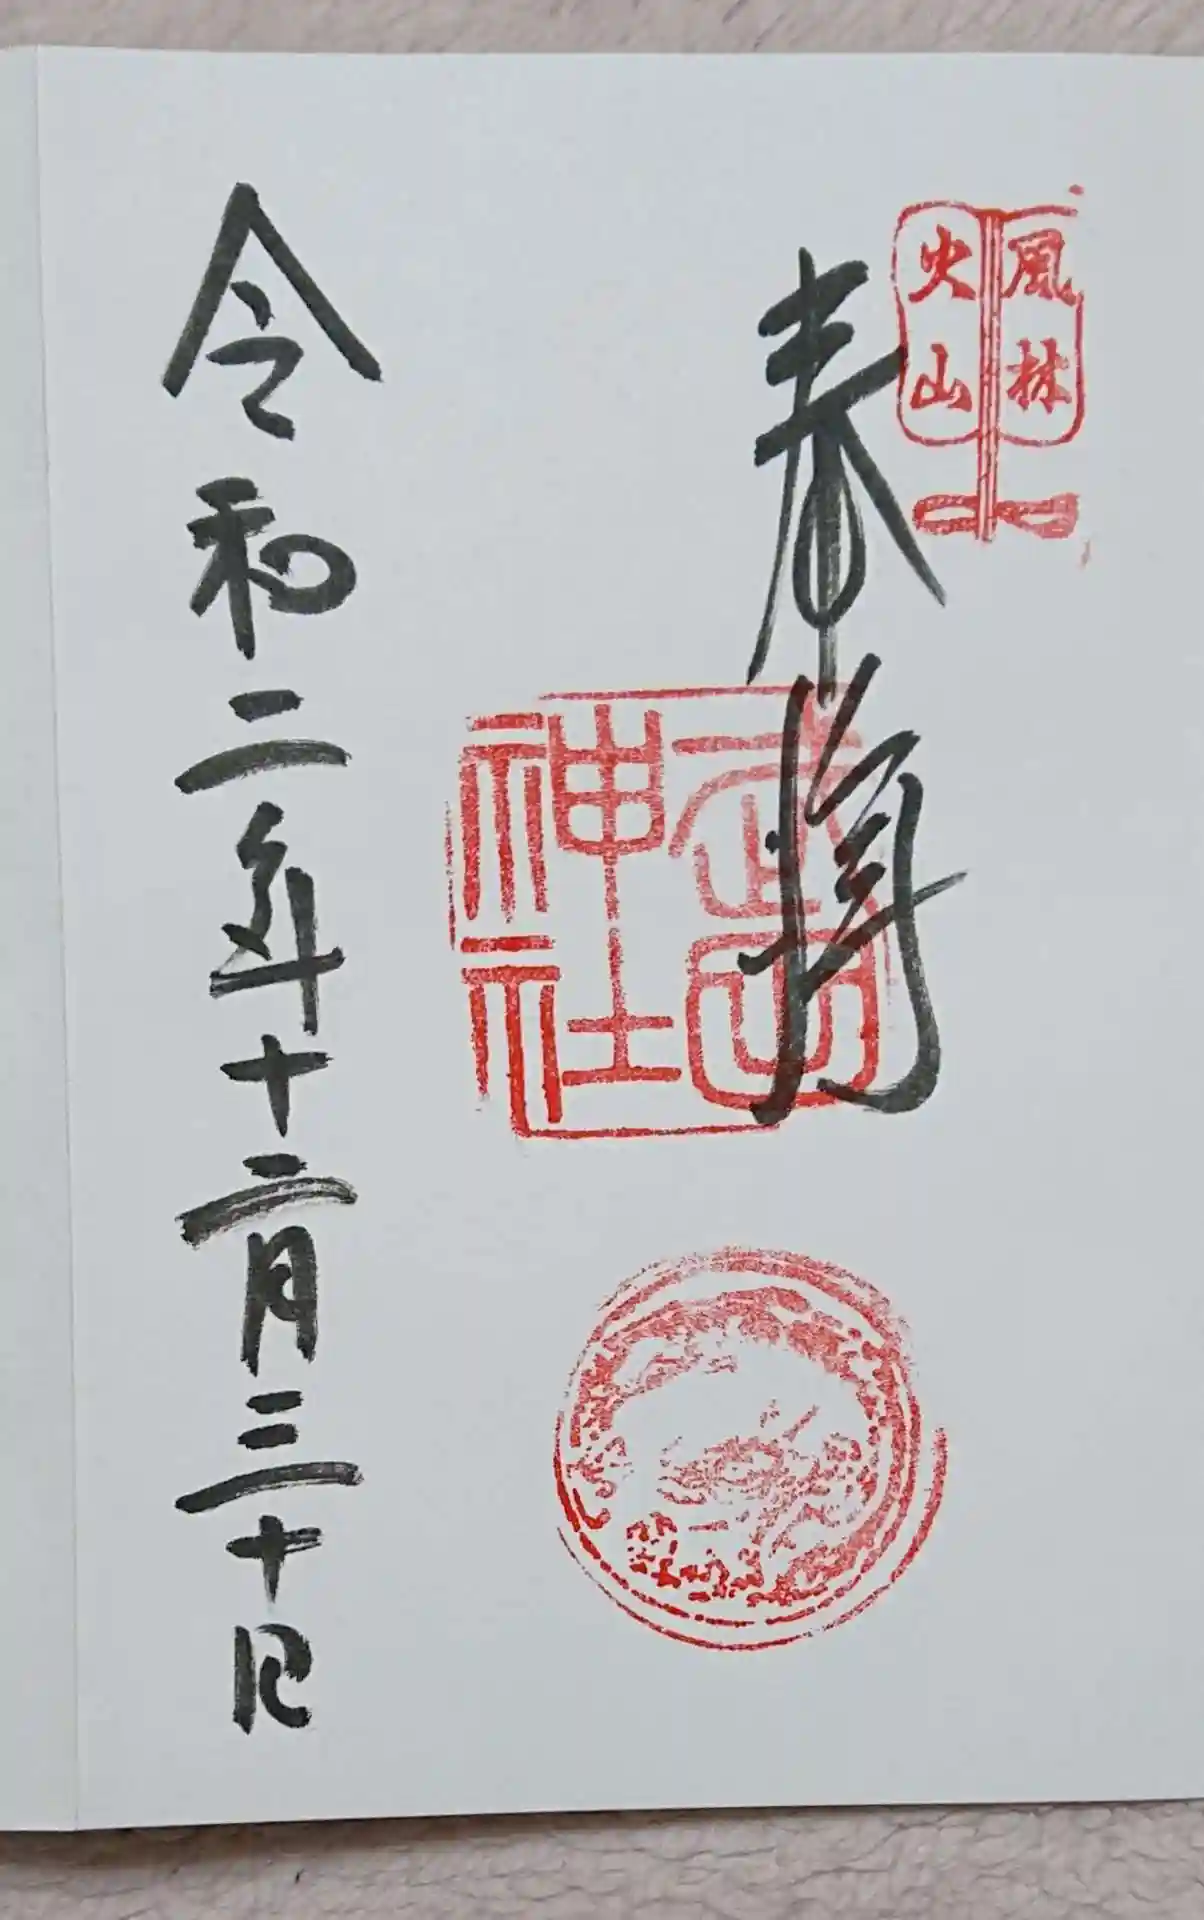 風林
火山
奉拝
武田
神社
令和二年十二月三十日